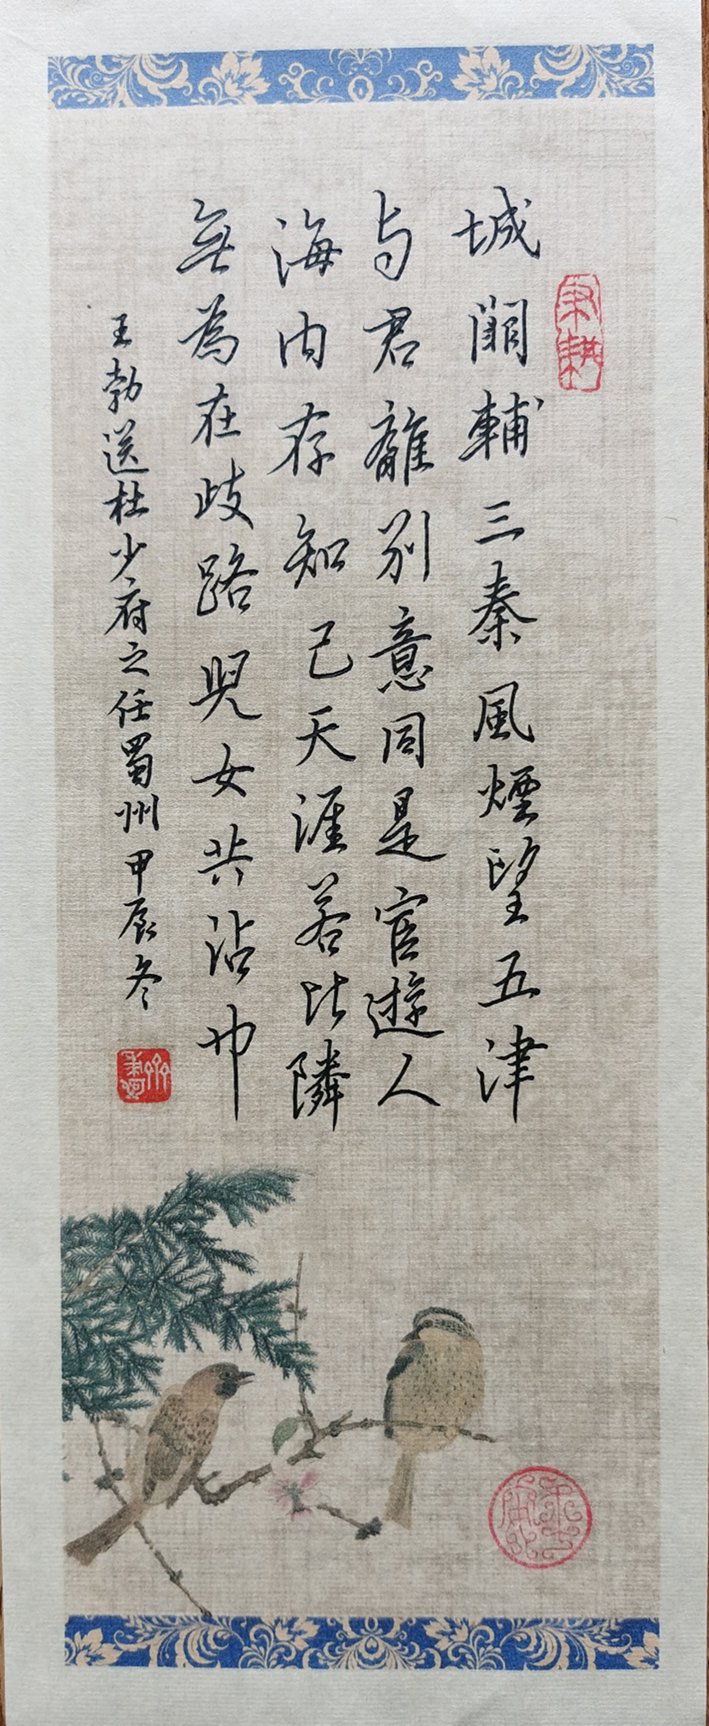 城闕輔三秦風煙望五津
与君離别意同是宦遊人
海内存知己天涯若比隣
無為在歧路兒女共沾巾
王勃送杜少府之任蜀州甲辰冬